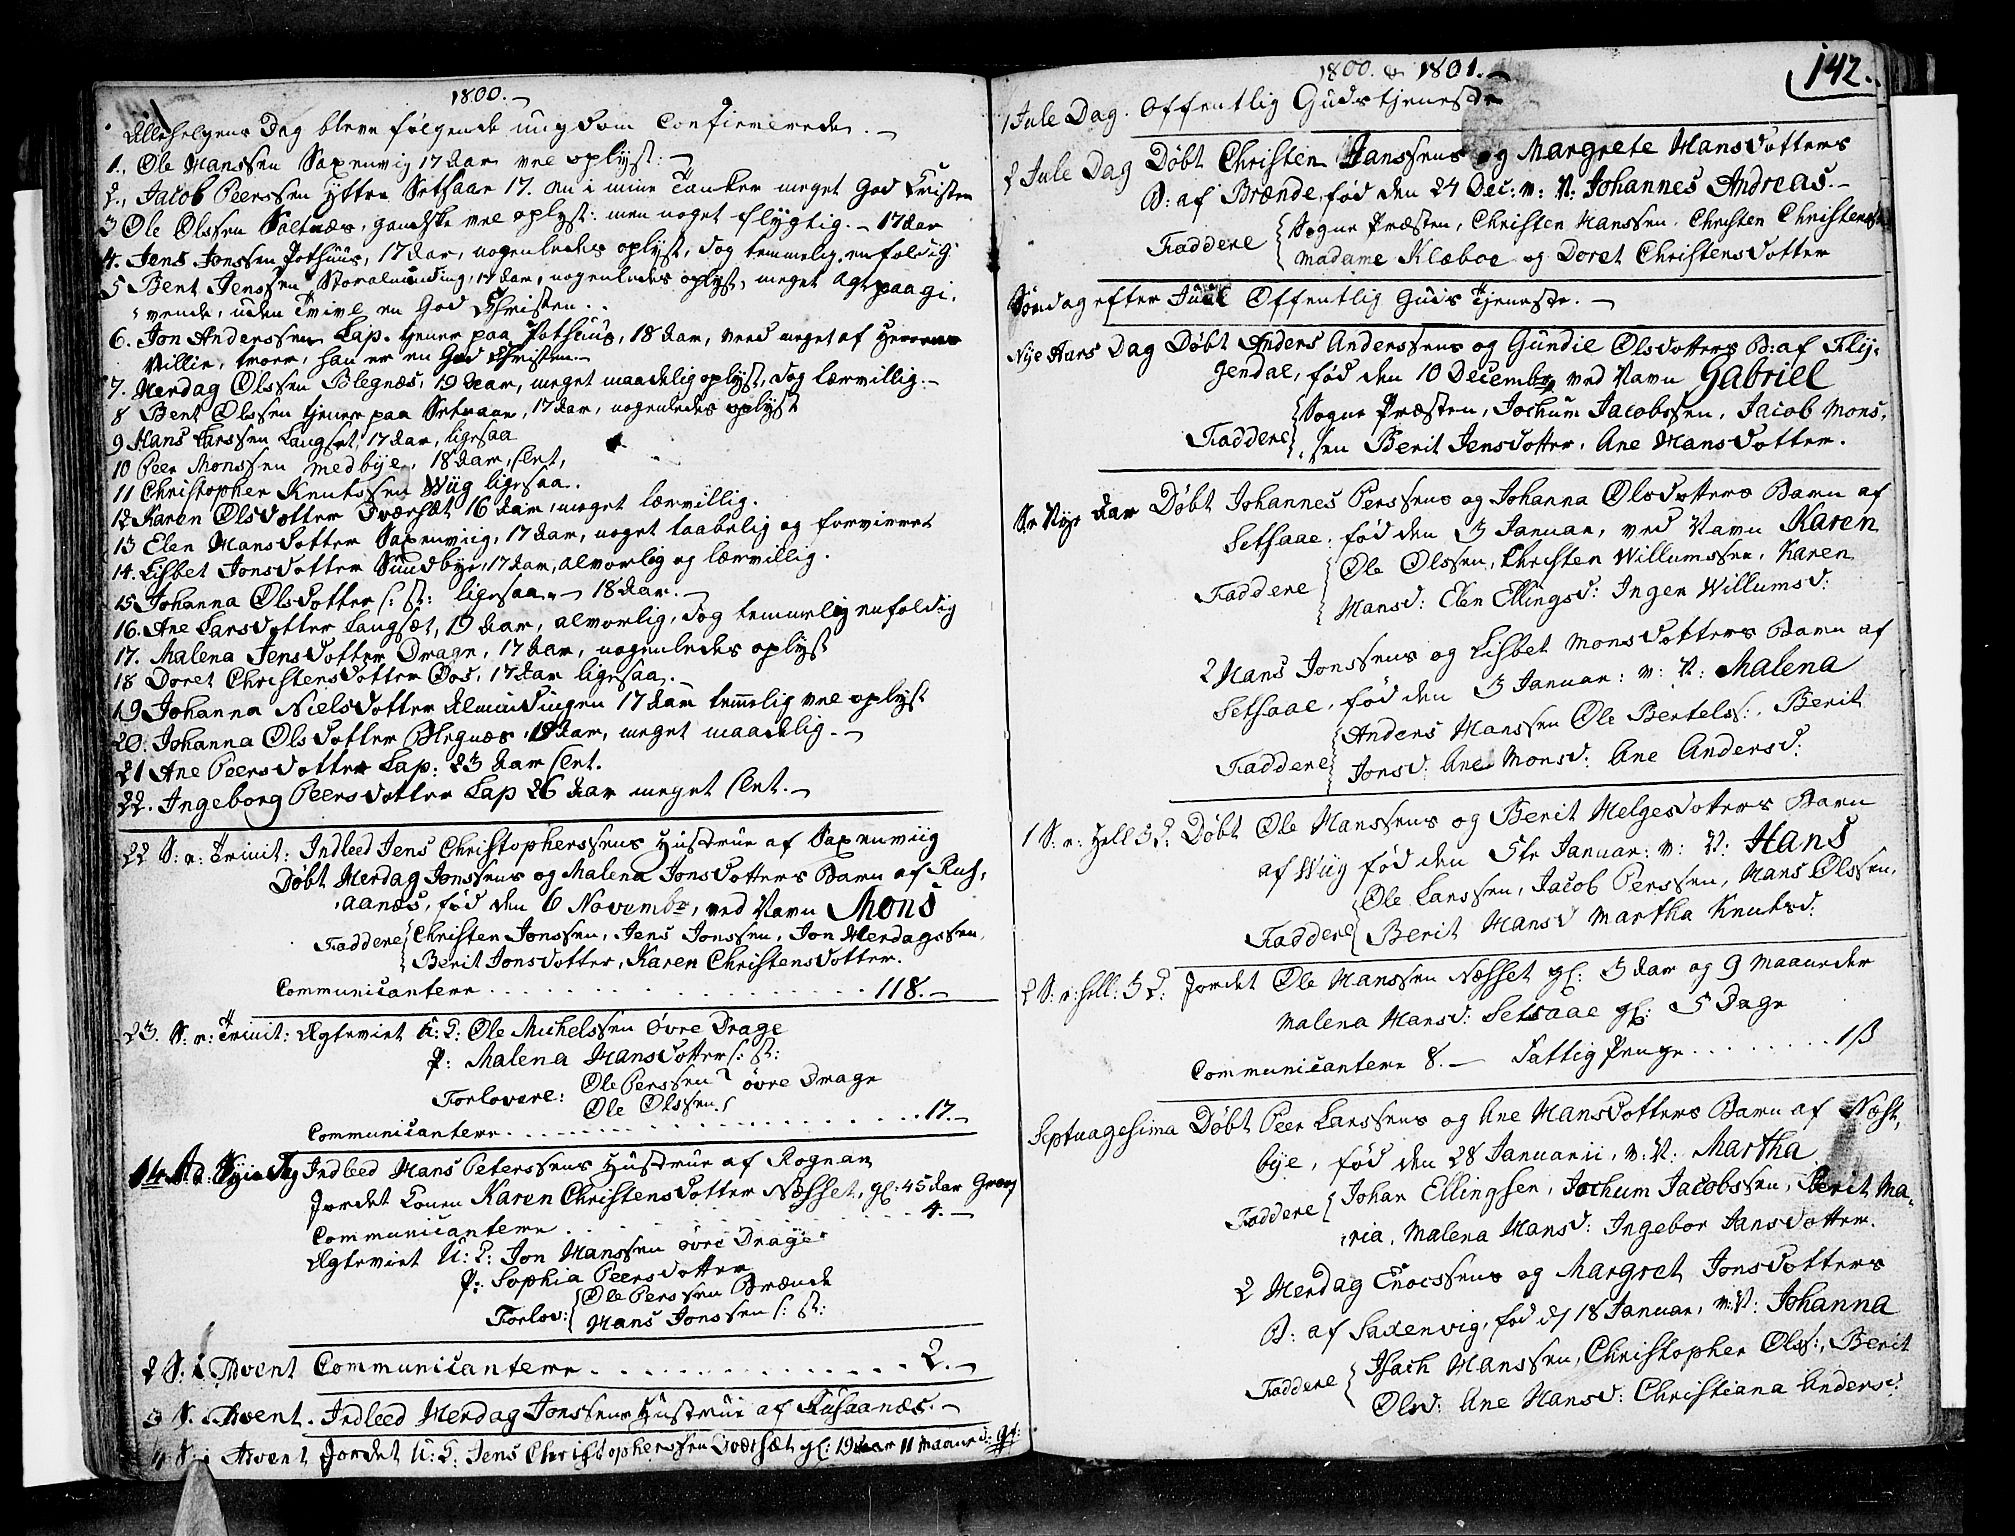 1800.
Allehelgens Dag bleve følgende ungdom Confirmerede.
1. Ole Hanssen Saxenvig 17 Aar vel oplyst:
2. Jacob Peerssen ytter Setsaae 17. Aar i mine Tanker meget God Cristen
3 Ole Olssen Saltnæs, gandske vel oplyst: men noget flygtig. 17 Aar
4. Jens Jonssen Pothuus, 17 Aar, nogenledes oplyst, dog temmelig enfoldig
5 Bent Jenssen Storalmending, 17 Aar, nogenledes oplyst, meget Agtpaagi,
vende, uden Tvivl en God Christen.
6. Jon Anderssen Lap. tjener paa Pothuus, 18 Aar, meget af Herrens
Villie, troer, han er en God Christen.
7. Herdag Olssen Blegnæs, 19 Aar, meget maadelig oplyst, dog lærvillig.
8 Bent Olssen tjener paa Setsaae, 17 Aar, nogenledes oplyst
9 Hans Larssen Langset, 17 Aar, ligesaa
10 Peer Monssen Medbye, 18 Aar, slet,
11 Christopher Knutssen Wiig ligesaa.
12 Karen Olsdotter Dværsæt 16 Aar, meget lærvillig.
13 Elen Hansdotter Saxenviig, 17 Aar, noget taabelig og forvirret
14. Lisbet Jonsdotter Sundbye, 17 Aar, alvorlig og lærvillig.
15 Johanna Olsdotter s: st: ligesaa 18 Aar.
16. Ane Larsdotter Langsæt, 19 Aar, alvorlig, dog temmelig enfoldig
17. Malena Jensdotter Drage, 17 Aar, nogenledes oplyst
18 Doret Christensdotter Øds, 17 Aar ligesaa.
19 Johanna Nielsdotter Almindingen 17 Aar temmelig vel oplyst
20. Johanna Olsdotter Blegnæs, 19 Aar, meget maadelig.
21 Ane Peersdotter Lap: 23 Aar slet.
22. Ingeborg Peersdotter Lap 26 Aar meget slet.
22 S: e: Trinit: Indleed Jens Christopherssens Hustrue af Saxenviig
Døbt Herdag Jonssens og Malena Jonsdotters Barn af Rus,
aanes, fød den 6 Novembr, ved Navn Mons
Faddere Christen Jonssen, Jens Jonssen, Jon Herdagssen,
Berit Jonsdotter, Karen Christensdotter.
Communicantere 118.
23. S: e: Trinit: Ægteviet U: K: Ole Michelssen Øvre Drage
P: Malena Hansdotter s: st:
Forlovere: Ole Perssen øvre Drage
Ole Olssen
Communicantere 17.
Indleed Hans Peterssens Hustrue af Rognan
Jordet Konen Karen Christensdotter Næsset, gl: 45 Aar
Communicantere 4.
Ægteviet U: K: Jon Hanssen øvre Drage
P: Sophia Peersdotter
Forlov: Ole Perssen Brænde
Hans Jonssen s: st:
2 S: i Advent Communicantere 2.
3 S: i Advent. Indleed Herdag Jonssens Hustrue af Rusaanæs.
4 S: i Advent Jordet U: K: Jens Christopherssen Dværsæt gl: 19 Aar 11 Maaned:
1800. & 1801.
142.
1 Jule Dag. Offentlig Gudstjeneste
2 Jule Dag Døbt Christen Janssens og Margrete Hansdotters
B: af Brænde, fød den 24 Dec: v: N: Johannes Andreas.
Faddere Sogne Præsten, Christen Hanssen, Christen Christenssen
Madame Klæboe og Doret Christensdotter
Søndag efter Juul Offentlig Guds Tjeneste.
Nye Aars Dag Døbt Anders Anderssens og Gundil Olsdotters B: af Flij,
gendal, fød den 10 Decembr, ved Navn Gabriel
Faddere Sogne Præsten, Jochum Jacobssen, Jacob Mons,
sen Berit Jensdotter, Ane Hansdotter.
S: e: Nye Aar Døbt Johannes Perssens og Johanna Olsdotters Barn af
Setsaae, fød den 3 Januar, ved Navn Karen
Faddere Ole Olssen, Christen Willumssen, Karen
Hansd: Elen Ellingsd: Ingen Willumsd:
2 Hans Jonssens og Lisbet Monsdotters Barn af
Setsaae, fød den 3 Januar: v: N: Malena
Faddere Anders Hanssen Ole Bertels:, Berit
Jonsd: Ane Monsd: Ane Andersd:
1 S: e: Hell 3 K: Døbt Ole Hanssens og Berit Helgesdotters Barn
af Wiig fød den 5te Januar: v: N: Hans
Faddere Ole Larssen, Jacob Perssen, Hans Olssen,
Berit Hansd Martha Knutsd:
2 S: e: Hell: 3 K: Jordet Ole Hanssen Næsset gl: 3 Aar og 9 Maaneder
Malena Hansd: Setsaae gl: 5 Dage
Communicantere 8. Fattig Penge 1 ß
Septuagesima Døbt Peer Larssens og Ane Hansdotters Barn af Næst,
bye, fød den 28 Januarii, v: N: Martha
Faddere Johan Ellingsen, Jochum Jacobssen, Berit Ma,
ria, Malena Hansd: Ingebor Jansdotter.
2 Herdag Enocssens og Margret Jonsdotters
B: af Saxenvig, fød d 18 Januar, v: N: Johanna
Faddere Isach Hanssen, Christopher Olss:, Berit
Olsd: Ane Hansd: Christiana Andersd: